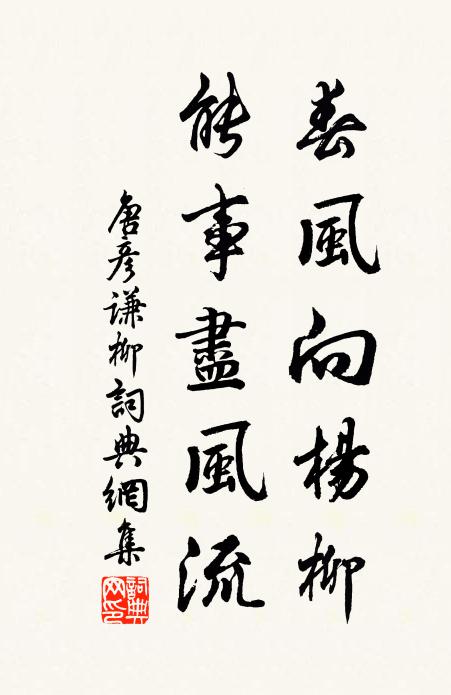 春風向楊柳
能事盡風流
唐彥謙柳詞典網集
詞典网印